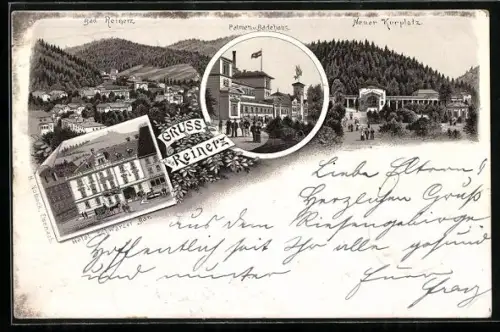 Bad Reinerz
Palmen u. Badehaus
Neuer Kurplatz
GRUSS
aus
Reinerz
Hotel Schwarzer Bär
Liebe Altern!
Herzlichen Gruß
aus dem Riesengebirge
Hoffentlich seit Ihr alle gesund
und munter
Euer
Franz